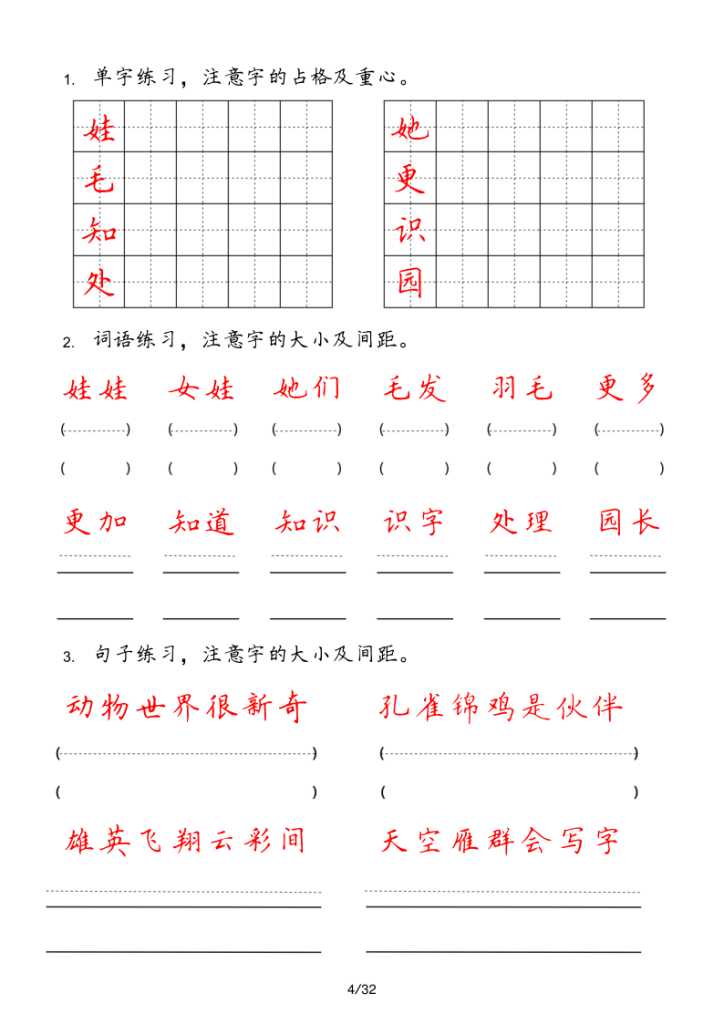 1. 单字练习，注意字的占格及重心。
娃 她
毛 更
知 识
处 园
2. 词语练习，注意字的大小及间距。
娃娃 女娃 她们 毛发 羽毛 更多
( ) ( ) ( ) ( ) ( ) ( )
( ) ( ) ( ) ( ) ( ) ( )
更加 知道 知识 识字 处理 园长
3. 句子练习，注意字的大小及间距。
动物世界很新奇 孔雀锦鸡是伙伴
( ) ( )
( ) ( )
雄英飞翔云彩间 天空雁群会写字
4/32